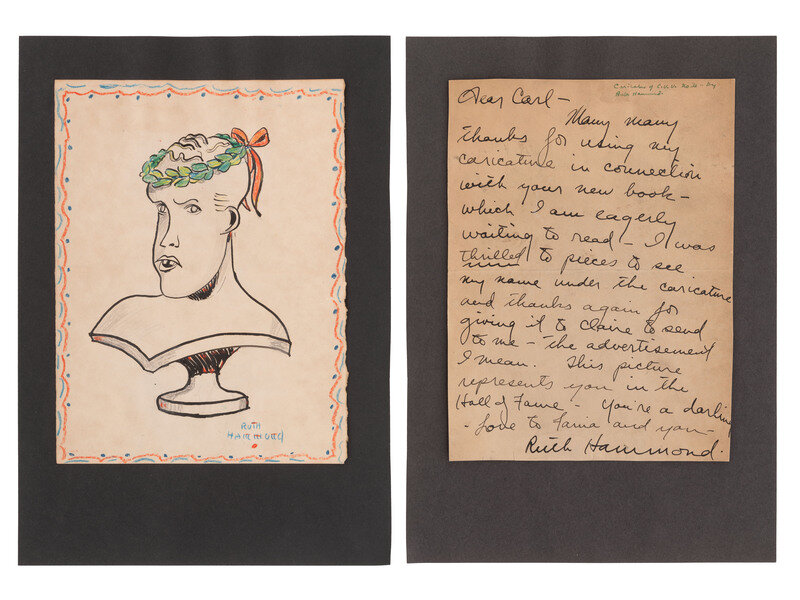 RUTH
HAMMOND
Caricature of C.V.V. by
Ruth Hammond
Dear Carl –
Many many
thanks for using my
caricature in connection
with your new book –
which I am eagerly
waiting to read – I was
thrilled to pieces to see
my name under the caricature
and thanks again for
giving it to Claire to send
to me – the advertisement
I mean. This picture
represents you in the
Hall of Fame – You're a darling
– Love to Fania and you –
Ruth Hammond.